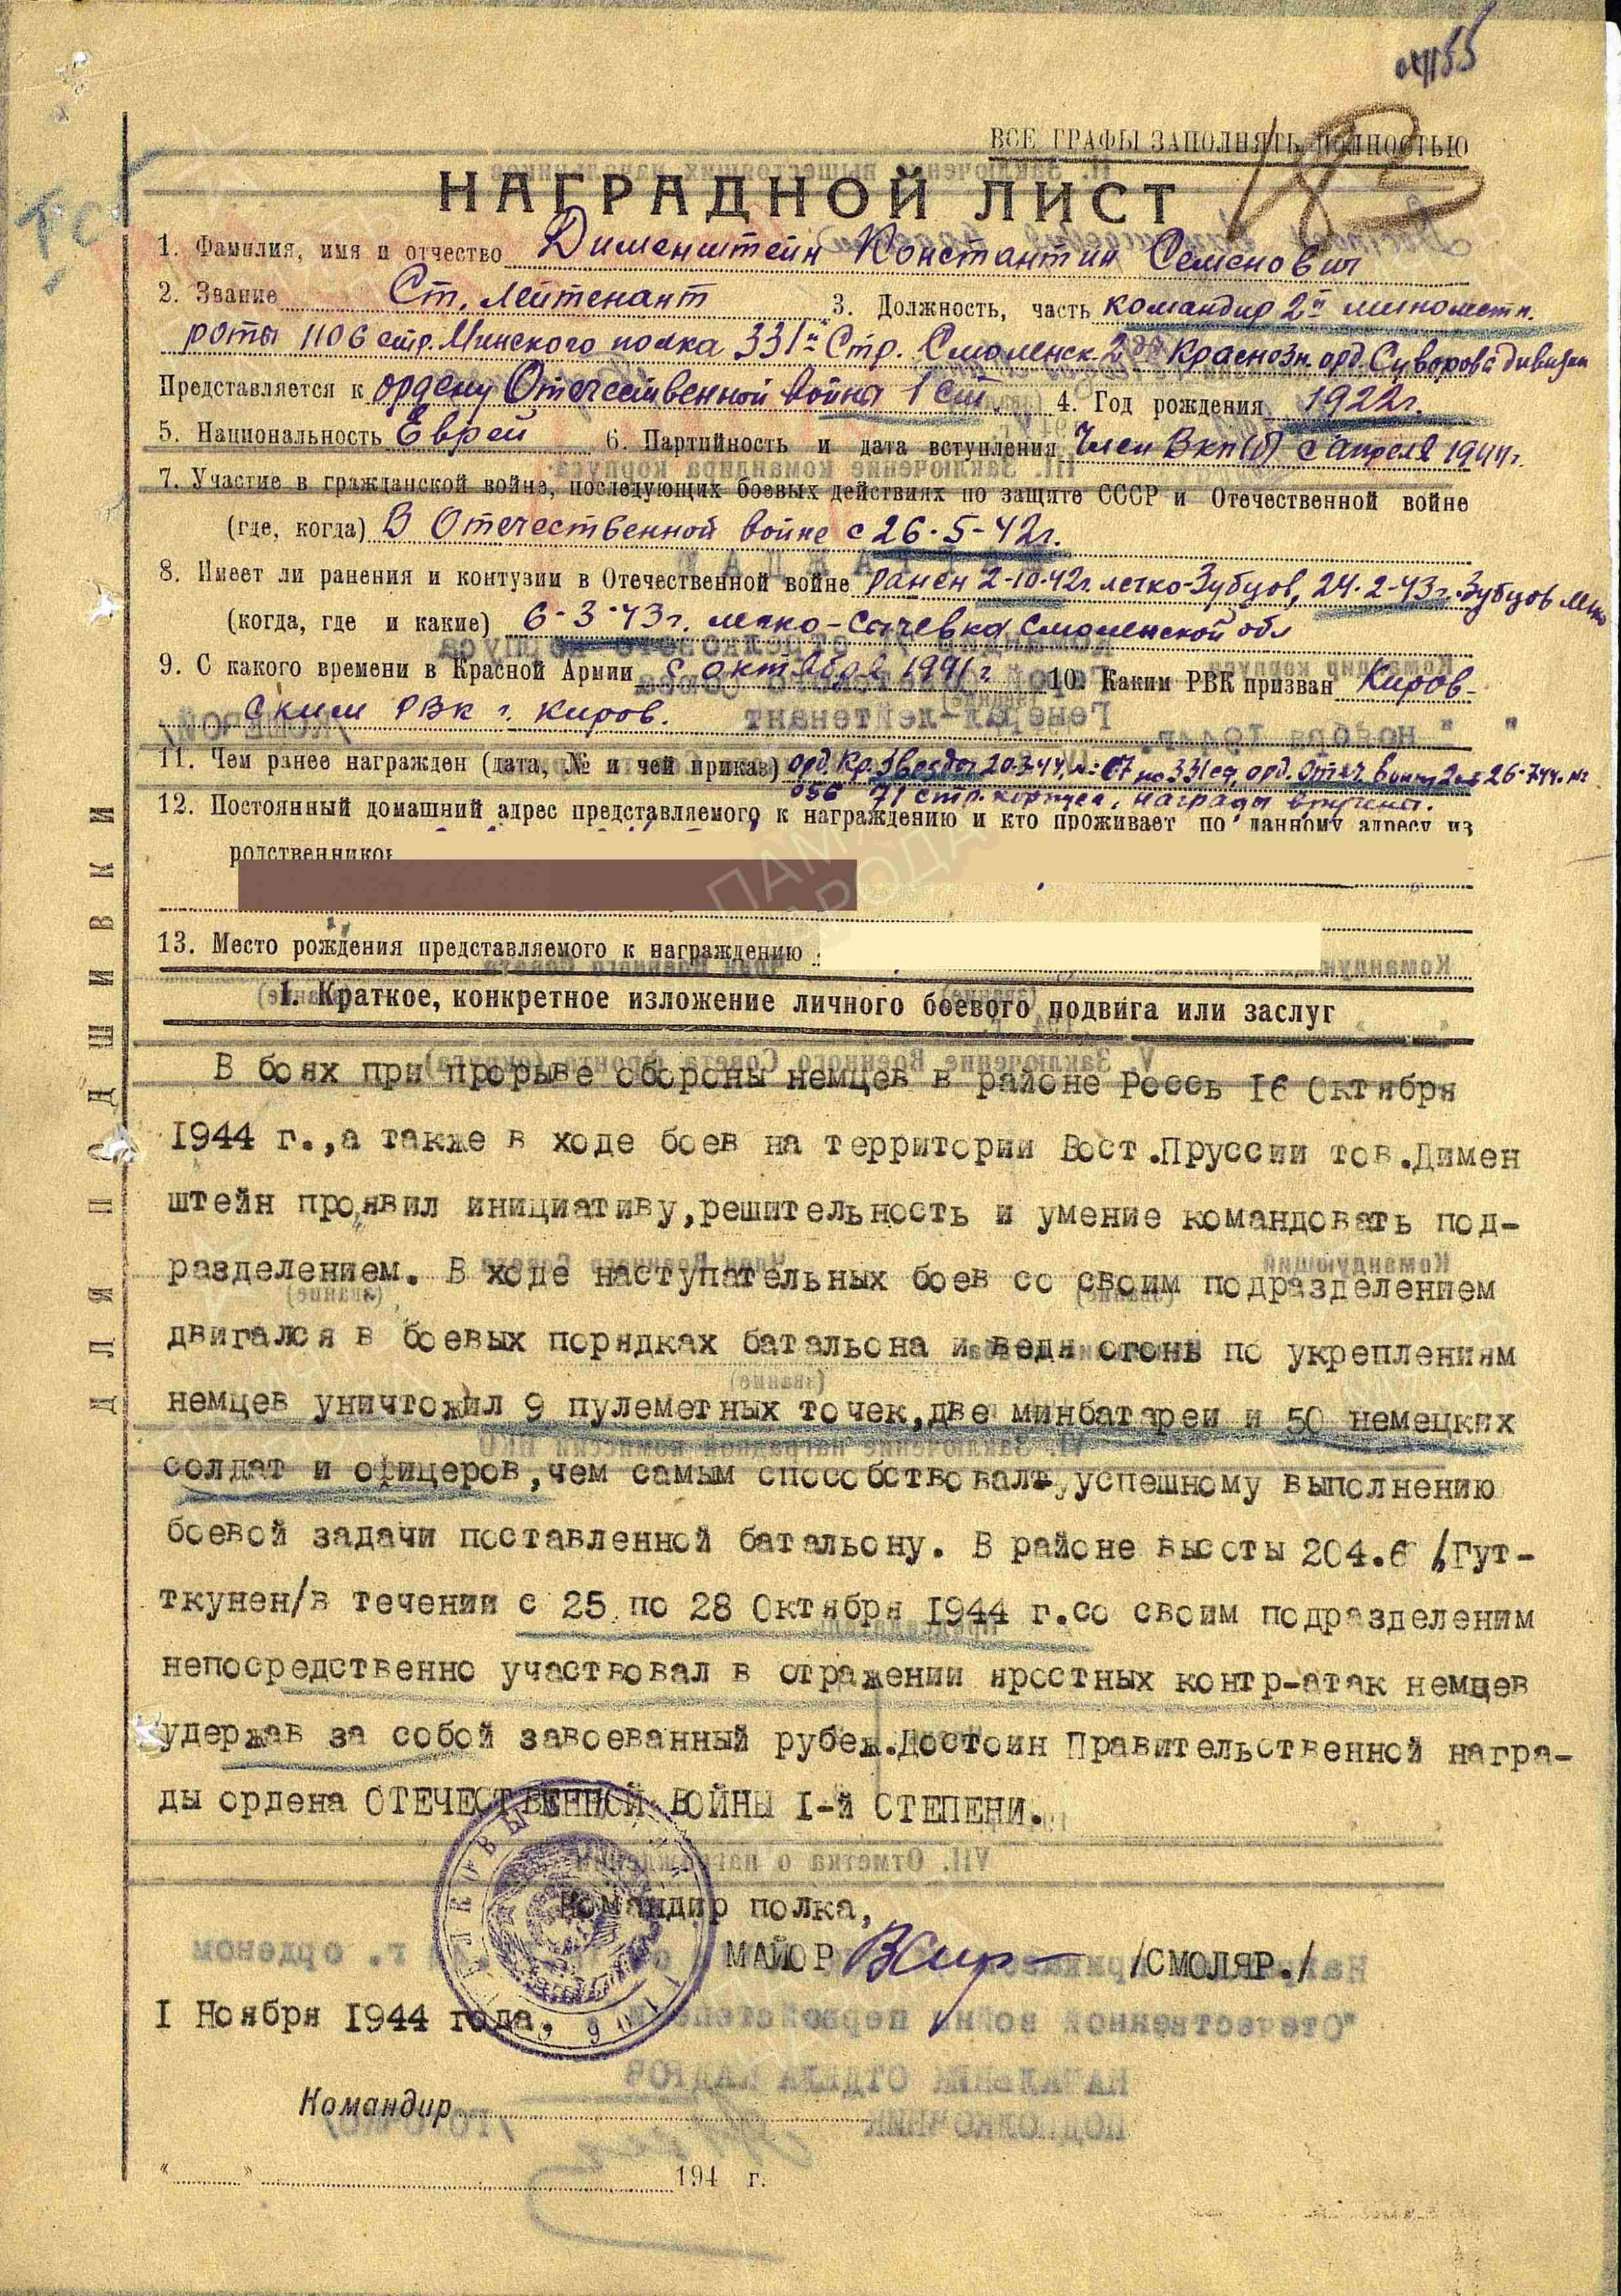 ВСЕ ГРАФЫ ЗАПОЛНЯТЬ ПОЛНОСТЬЮ
НАГРАДНОЙ ЛИСТ
1. Фамилия, имя и отчество Дименштейн Константин Семенович
2. Звание Ст. лейтенант 3. Должность, часть командир 2й минометн.
роты 1106 стр. Минского полка 331й Стр. Смоленск. 2жд Краснозн. орд. Суворова дивизии
Представляется к ордену Отечественной война 1 ст. 4. Год рождения 1922г.
5. Национальность Еврей 6. Партийность и дата вступления Член ВКП(б) с апреля 1944г.
7. Участие в гражданской войне, последующих боевых действиях по защите СССР и Отечественной войне
(где, когда) В Отечественной войне с 26-5-42г.
8. Имеет ли ранения и контузии в Отечественной войне ранен 2-10-42г. легко-Зубцов, 24-2-43г. Зубцов легко
(когда, где и какие) 6-3-43г. легко-Сычевка Смоленской обл
9. С какого времени в Красной Армии с октября 1941г 10. Каким РВК призван Киров-
ским РВК г. Киров.
11. Чем ранее награжден (дата, № и чей приказ) орд. Кр. Звезды 20-3-44, №: 07 по 331сд, орд. Отеч. войны 2 ст 26-7-44. №
056 71 стр. корпуса, награды вручены.
12. Постоянный домашний адрес представляемого к награждению и кто проживает по данному адресу из
родственников
13. Место рождения представляемого к награждению
I. Краткое, конкретное изложение личного боевого подвига или заслуг
В боях при прорыве обороны немцев в районе Россь 16 Октября
1944 г.,а также в ходе боев на территории Вост.Пруссии тов.Димен
штейн проявил инициативу,решительность и умение командовать под-
разделением. В ходе наступательных боев со своим подразделением
двигался в боевых порядках батальона и ведя огонь по укреплениям
немцев уничтожил 9 пулеметных точек,две минбатареи и 50 немецких
солдат и офицеров,чем самым способствовал успешному выполнению
боевой задачи поставленной батальону. В районе высоты 204.6 /Гут-
ткунен/в течении с 25 по 28 Октября 1944 г.со своим подразделеним
непосредственно участвовал в отражении яростных контр-атак немцев
удержав за собой завоеванный рубеж.Достоин Правительственной награ-
ды ордена ОТЕЧЕСТВЕННОЙ ВОЙНЫ I-й СТЕПЕНИ.
Командир полка,
МАЙОР /СМОЛЯР./
I Ноября 1944 года.
Командир
" " 194 г.
ДЛЯ ПОДШИВКИ